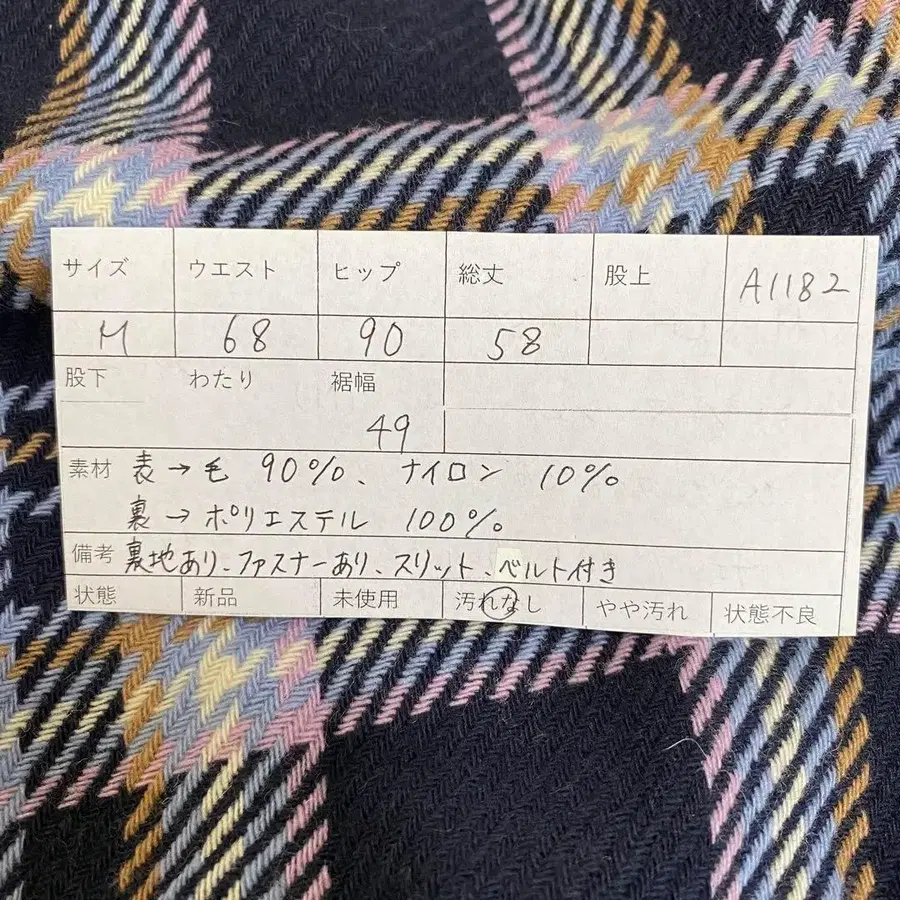 サイズ ウエスト ヒップ 総丈 股上 A1182
M 68 90 58
股下 わたり 裾幅
49
素材 表→毛 90%、ナイロン 10%
裏→ポリエステル 100%
備考 裏地あり、ファスナーあり、スリット、ベルト付き
状態 新品 未使用 汚れなし やや汚れ 状態不良